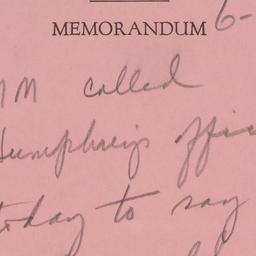 6-
MEMORANDUM
MM called
Humphreys offic
today to say